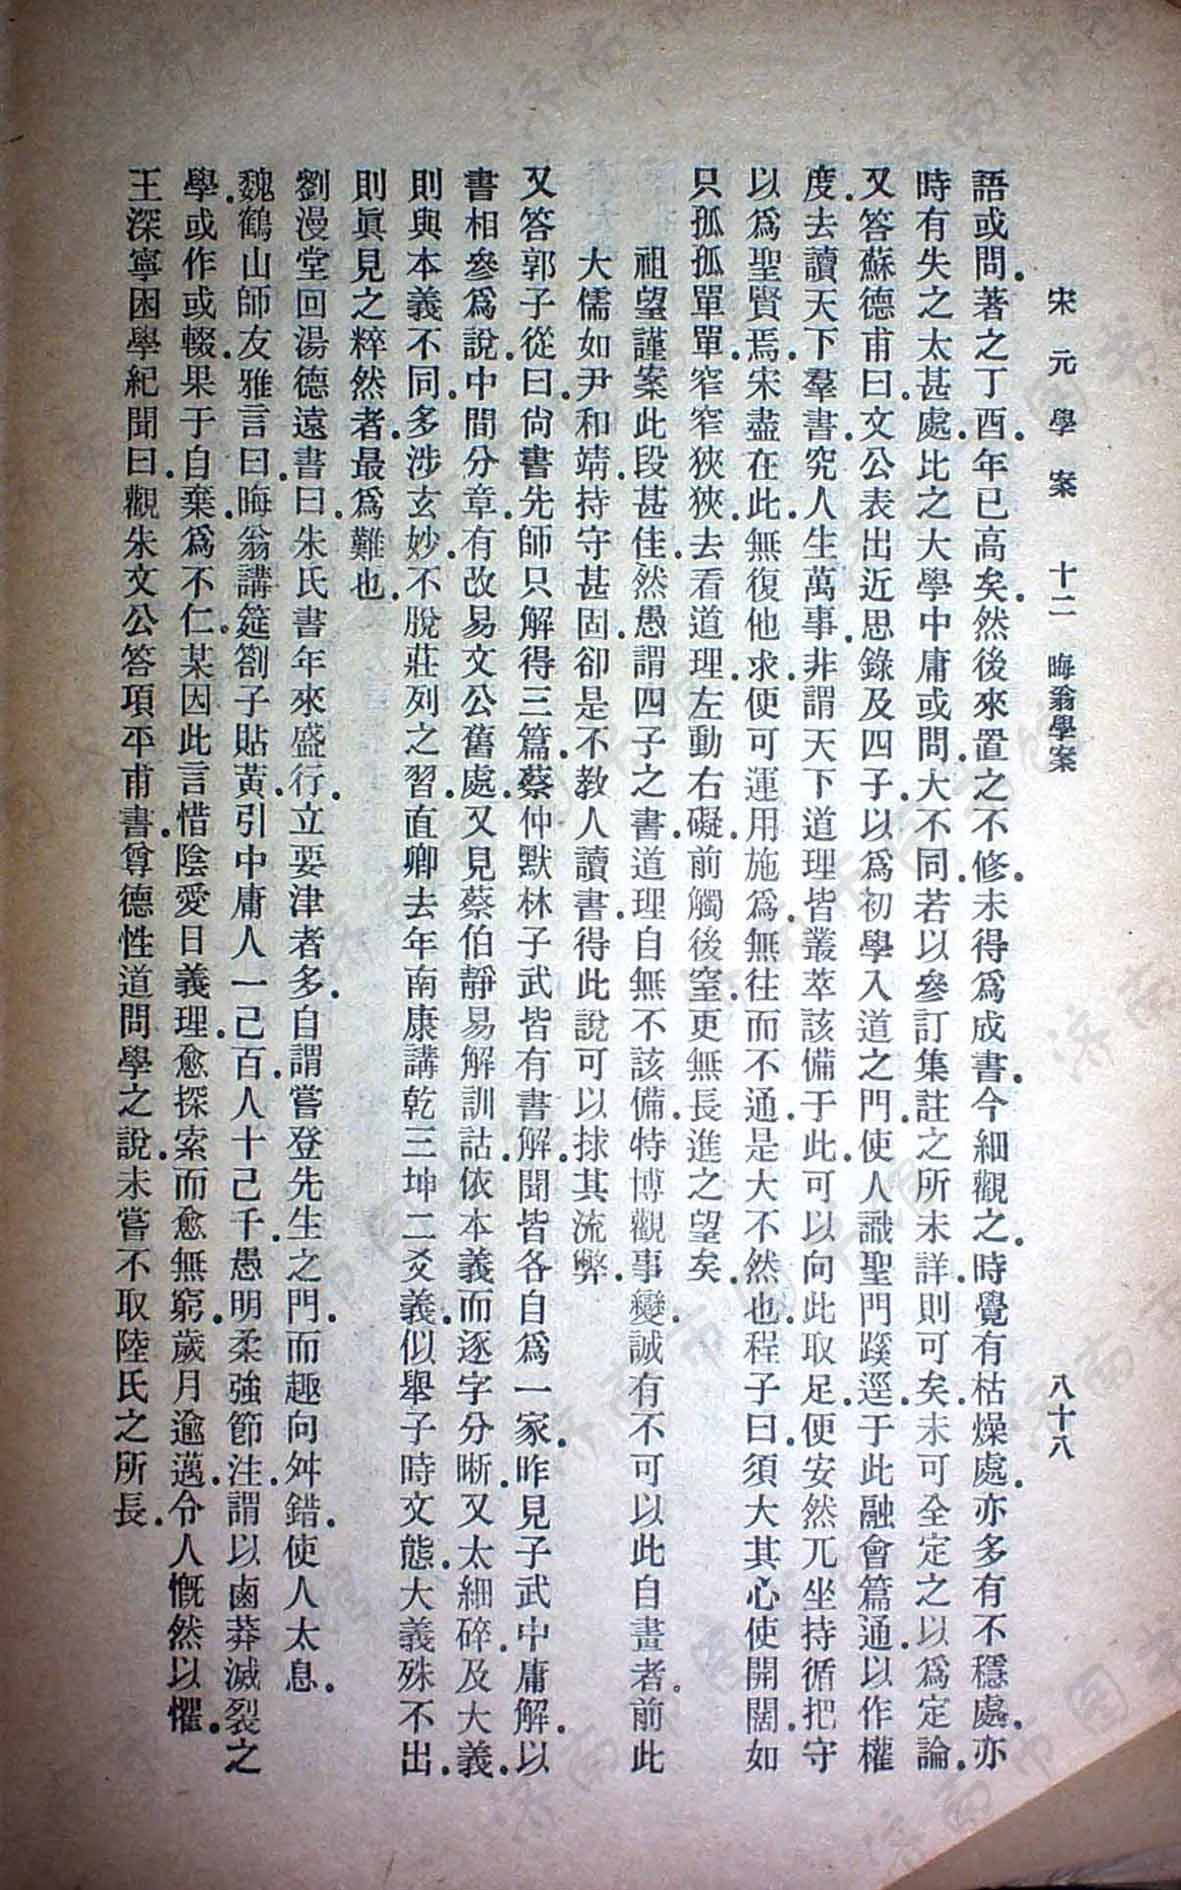 宋元學案 十二 晦翁學案 八十八
語或問.著之丁酉.年已高矣.然後來置之不修.未得爲成書.今細觀之.時覺有枯燥處.亦多有不穩處.亦
時有失之太甚處.比之大學中庸或問.大不同.若以參訂集註之所未詳.則可矣.未可全定之以爲定論.
又答蘇德甫曰.文公表出近思錄及四子.以爲初學入道之門.使人識聖門蹊逕.于此融會篇通.以作權
度.去讀天下羣書.究人生萬事.非謂天下道理皆叢萃該備于此.可以向此取足.便安然兀坐持循.把守
以爲聖賢焉.宋盡在此.無復他求.便可運用施爲.無往而不通.是大不然也.程子曰.須大其心使開闊.如
只孤孤單單.窄窄狹狹.去看道理.左動右礙.前觸後窒.更無長進之望矣.
祖望謹案此段甚佳.然愚謂四子之書.道理自無不該備.特博觀事變.誠有不可以此自畫者。前此
大儒如尹和靖.持守甚固.卻是不教人讀書.得此說可以捄其流弊.
又答郭子從曰.尙書先師只解得三篇.蔡仲默林子武皆有書解.聞皆各自爲一家.昨見子武中庸解.以
書相參爲說.中間分章.有改易文公舊處.又見蔡伯靜易解訓詁.依本義而逐字分晰.又太細碎.及大義.
則與本義不同.多涉玄妙.不脫莊列之習.直卿去年南康講乾三坤二爻義.似舉子時文態.大義殊不出.
則眞見之粹然者.最爲難也.
劉漫堂回湯德遠書曰.朱氏書年來盛行.立要津者多.自謂嘗登先生之門.而趣向舛錯.使人太息。
魏鶴山師友雅言曰.晦翁講筵劄子貼黃.引中庸人一己百.人十己千.愚明柔強節注.謂以鹵莽滅裂之
學.或作或輟.果于自棄.爲不仁。某因此言惜陰愛日.義理愈探索而愈無窮.歲月逾邁.令人慨然以懼.
王深寧困學紀聞曰.觀朱文公答項平甫書.尊德性道問學之說.未嘗不取陸氏之所長.